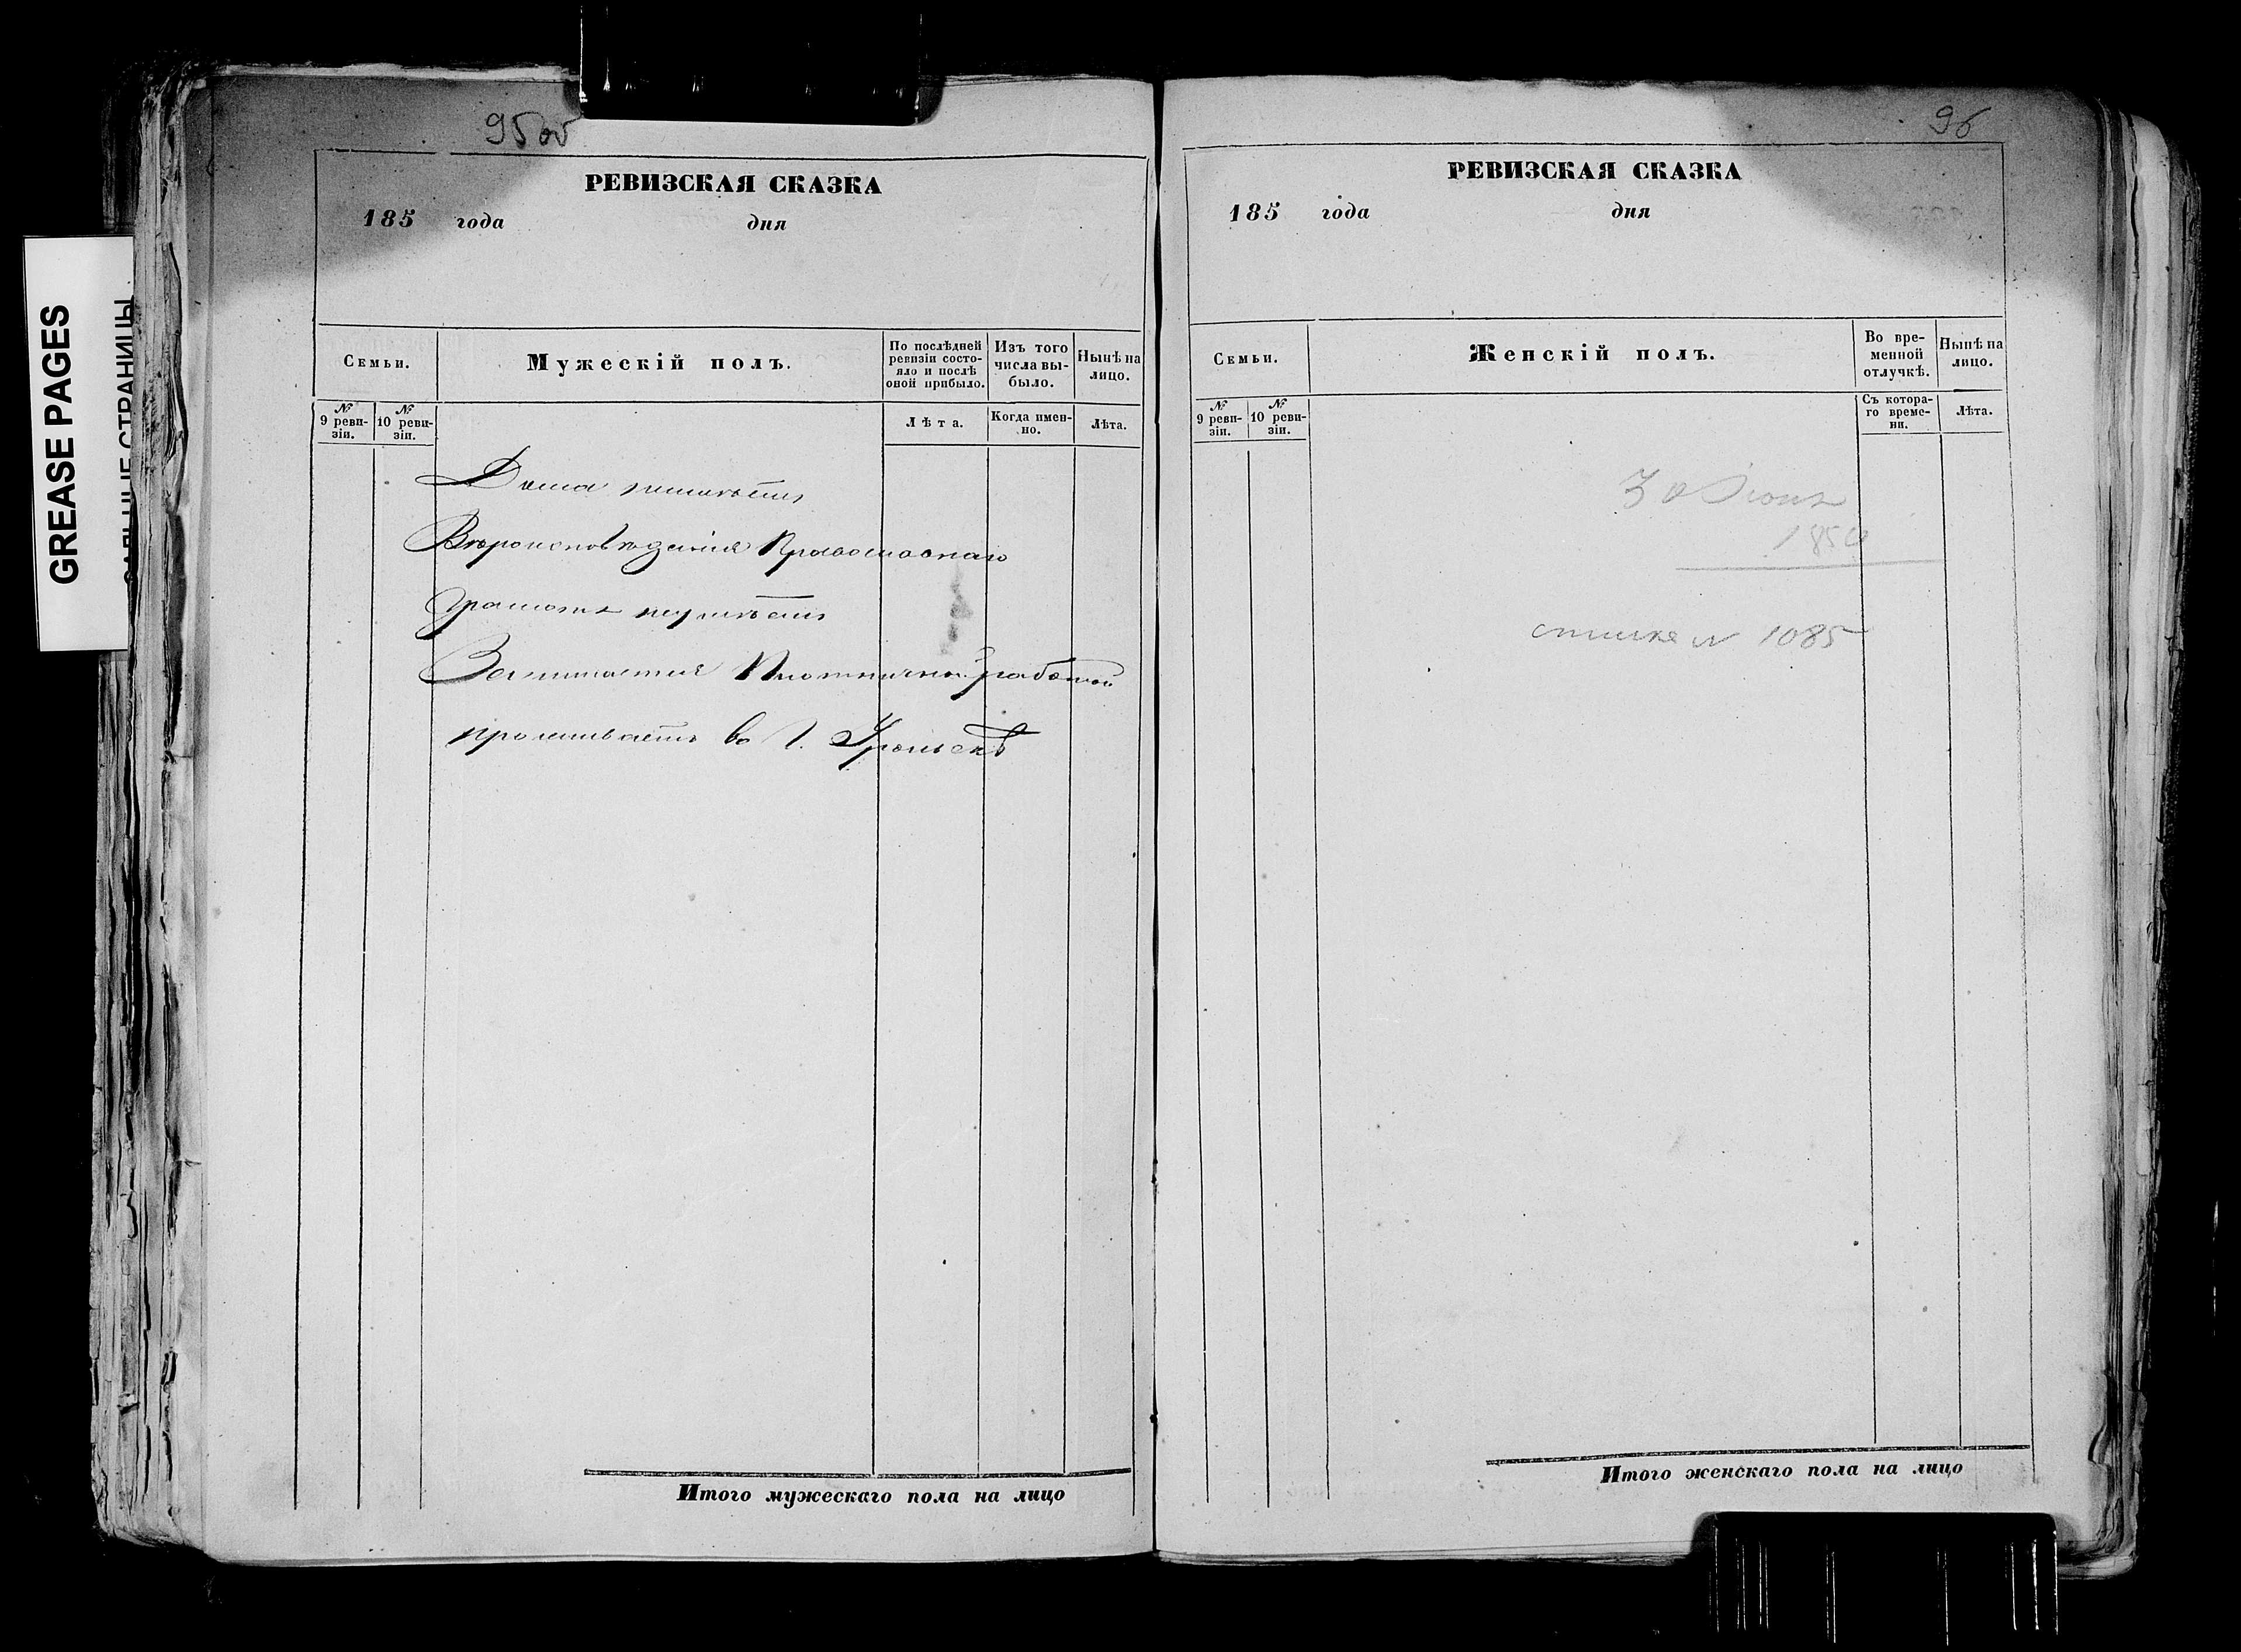 GREASE PAGES
95 об
РЕВИЗСКАЯ СКАЗКА
185 года дня
Семьи.
Мужескій полъ.
По послѣдней ревизіи состояло и послѣ оной прибыло.
Изъ того числа выбыло.
Нынѣ на лицо.
№ 9 ревизіи.
№ 10 ревизіи.
Лѣта.
Когда именно.
Лѣта.
Дома неимѣетъ
Вѣроисповѣданія Православнаго
Грамотѣ неумѣетъ
Занимается Плотничной работой
проживаетъ въ г. Уральскѣ
Итого мужескаго пола на лицо
96
РЕВИЗСКАЯ СКАЗКА
185 года дня
Семьи.
Женскій полъ.
Во временной отлучкѣ.
Нынѣ на лицо.
№ 9 ревизіи.
№ 10 ревизіи.
Съ котораго времени.
Лѣта.
185
№ 1085
Итого женскаго пола на лицо